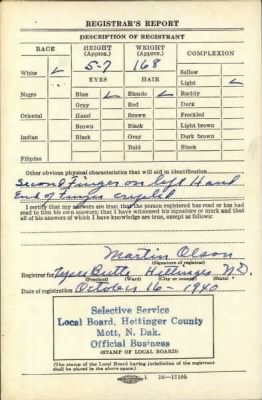 REGISTRAR'S REPORT
DESCRIPTION OF REGISTRANT
RACE HEIGHT (Approx.) WEIGHT (Approx.) COMPLEXION
5-7 168
White ✓ EYES HAIR Sallow
Light ✓
Negro Blue ✓ Blonde ✓ Ruddy
Gray Red Dark
Oriental Hazel Brown Freckled
Brown Black Light brown
Indian Black Gray Dark brown
Bald Black
Filipino
Other obvious physical characteristics that will aid in identification
Second Finger on left Hand
End of Finger
I certify that my answers are true; that the person registered has read or has had
read to him his own answers; that I have witnessed his signature or mark and that
all of his answers of which I have knowledge are true, except as follows:
Martin Olson
(Signature of registrar)
Registrar for Butte Hettinger N.D.
(Precinct) (Ward) (City or county) (State)
Date of registration October 16 - 1940
Selective Service
Local Board, Hettinger County
Mott, N. Dak.
Official Business
(STAMP OF LOCAL BOARD)
(The stamp of the Local Board having jurisdiction of the registrant
shall be placed in the above space.)
16-17105